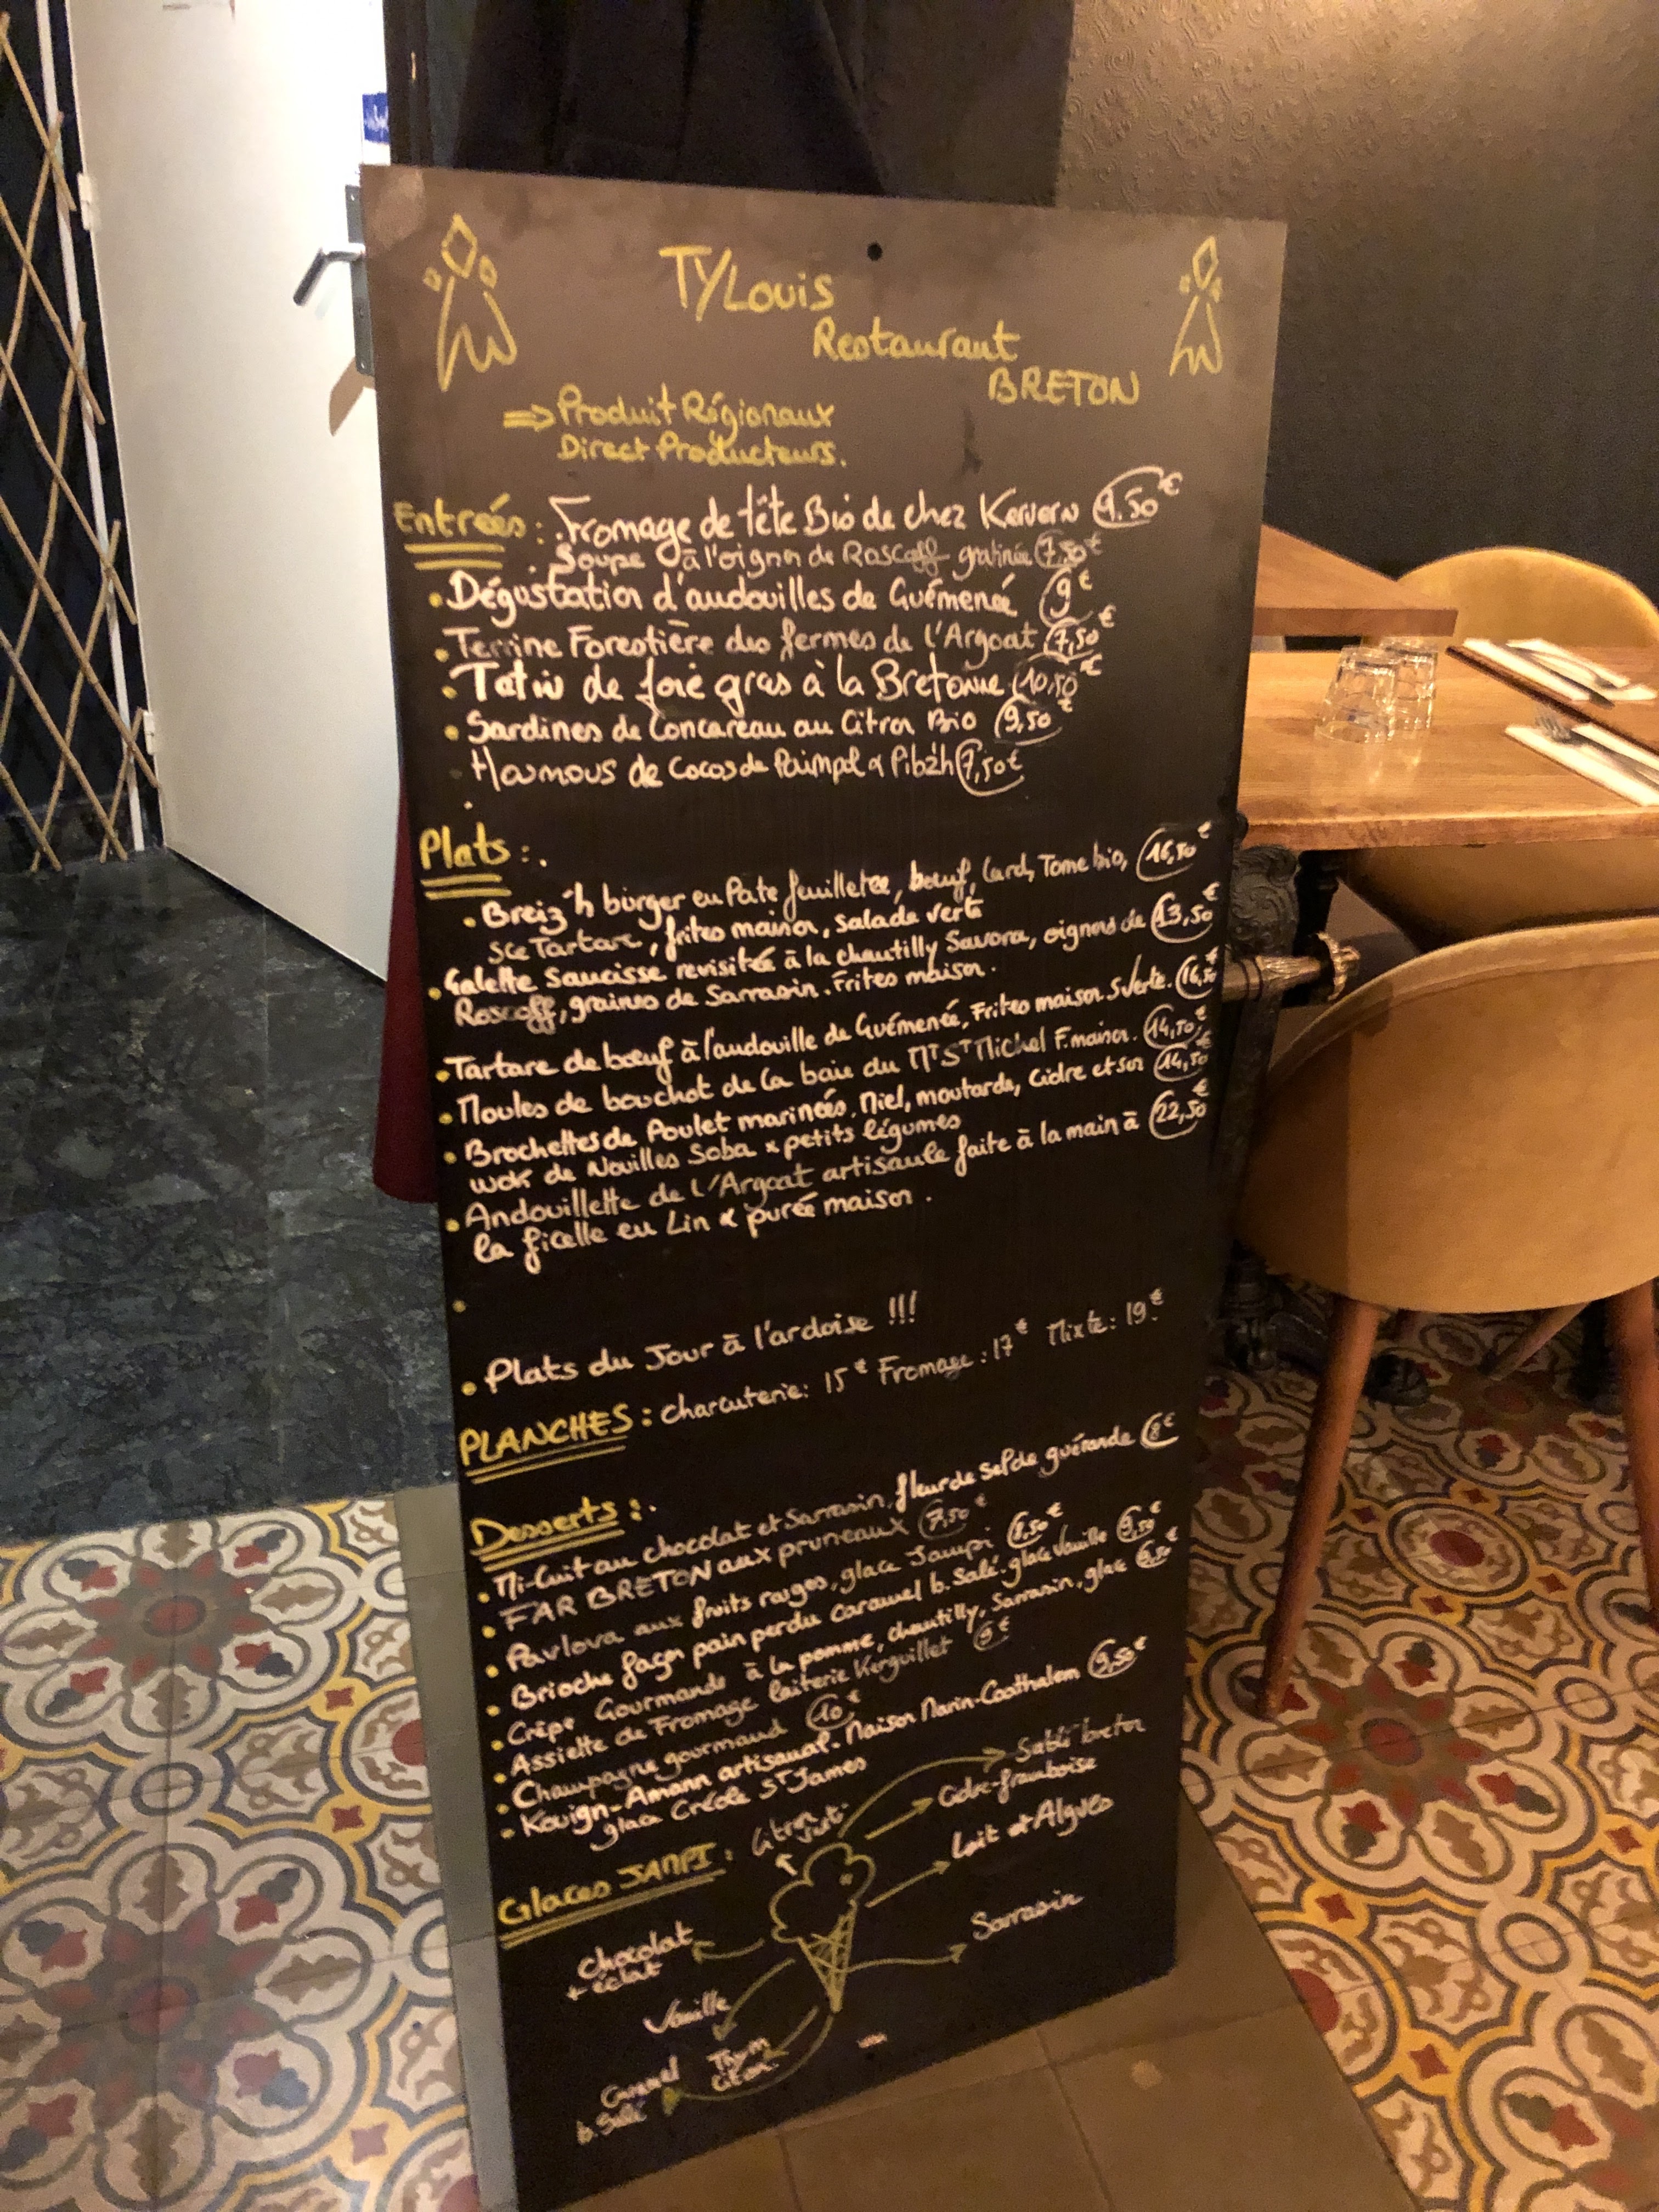 TYLouis
Restaurant
BRETON
⇒ Produit Régionaux
Direct Producteurs.
Entrées : . Fromage de tête Bio de chez Kervern 9.50€
. Soupe à l'oignon de Roscoff gratinée 7,50€
• Dégustation d'andouilles de Guémené 9€
• Terrine Forestière des fermes de l'Argoat 7,50€
• Tatin de foie gras à la Bretonne 10,50€
• Sardines de Concarneau au Citron Bio 9,50€
Houmous de Cocos de Paimpol & Pibzh 7,50€
Plats :.
• Breiz'h burger en Pate feuilletée, boeuf, lard, Tome bio, 16,50€
Sce Tartare, frites maison, salade verte
• Galette Saucisse revisitée à la chantilly Savora, oignons de 13,50€
Roscoff, graines de Sarrasin. Frites maison.
• Tartare de bœuf à l'andouille de Guémené, Frites maison. S verte. 16,50€
• Moules de bouchot de la baie du Mt St Michel F. maison. 14,50€
• Brochettes de Poulet marinées, Miel, moutarde, Cidre et son 14,50€
wok de Nouilles Soba x petits légumes
• Andouillette de l'Argoat artisanle faite à la main à 22,50€
la ficelle en Lin & purée maison.
• Plats du Jour à l'ardoise !!!
PLANCHES : charcuterie: 15€ Fromage : 17€ Mixte : 19€
Desserts :.
• Mi-Cuit au chocolat et Sarrasin, fleur de Sel de guérande 8€
• FAR BRETON aux pruneaux 7,50€
• Pavlova aux fruits rouges, glace Jampi 8,50€
• Brioche façon pain perdu Caramel b. Salé. glace Vanille 9,50€
• Crêpe Gourmande à la pomme, chantilly, Sarrasin, glace
• Assiette de Fromage laiterie Kerguillet 9€
• Champagne gourmand 10€
• Kouign-Amann artisanal. Maison Marin-Coathalem 9,50€
glace Créole St James
Glaces JAMPI : Citron vert
Sablé breton
Cidre-framboise
Lait et Algues
Sarrasin
Chocolat
+ éclat
Vanille
Thym
citron
Caramel
b. Salé